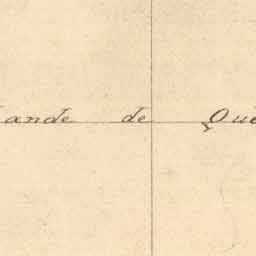 ande de Que